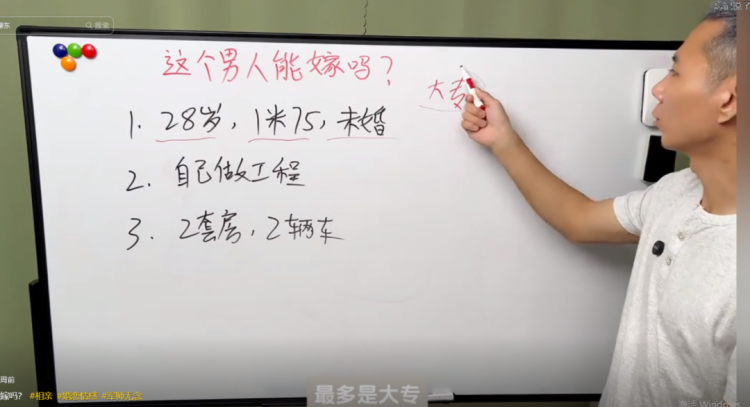 搜索
这个男人能嫁吗？
大专
1. 28岁，1米75，未婚
2. 自己做工程
3. 2套房，2辆车
周前
嫁吗？ #相亲 #婚恋情感 #军师无念
最多是大专
激活 Windows